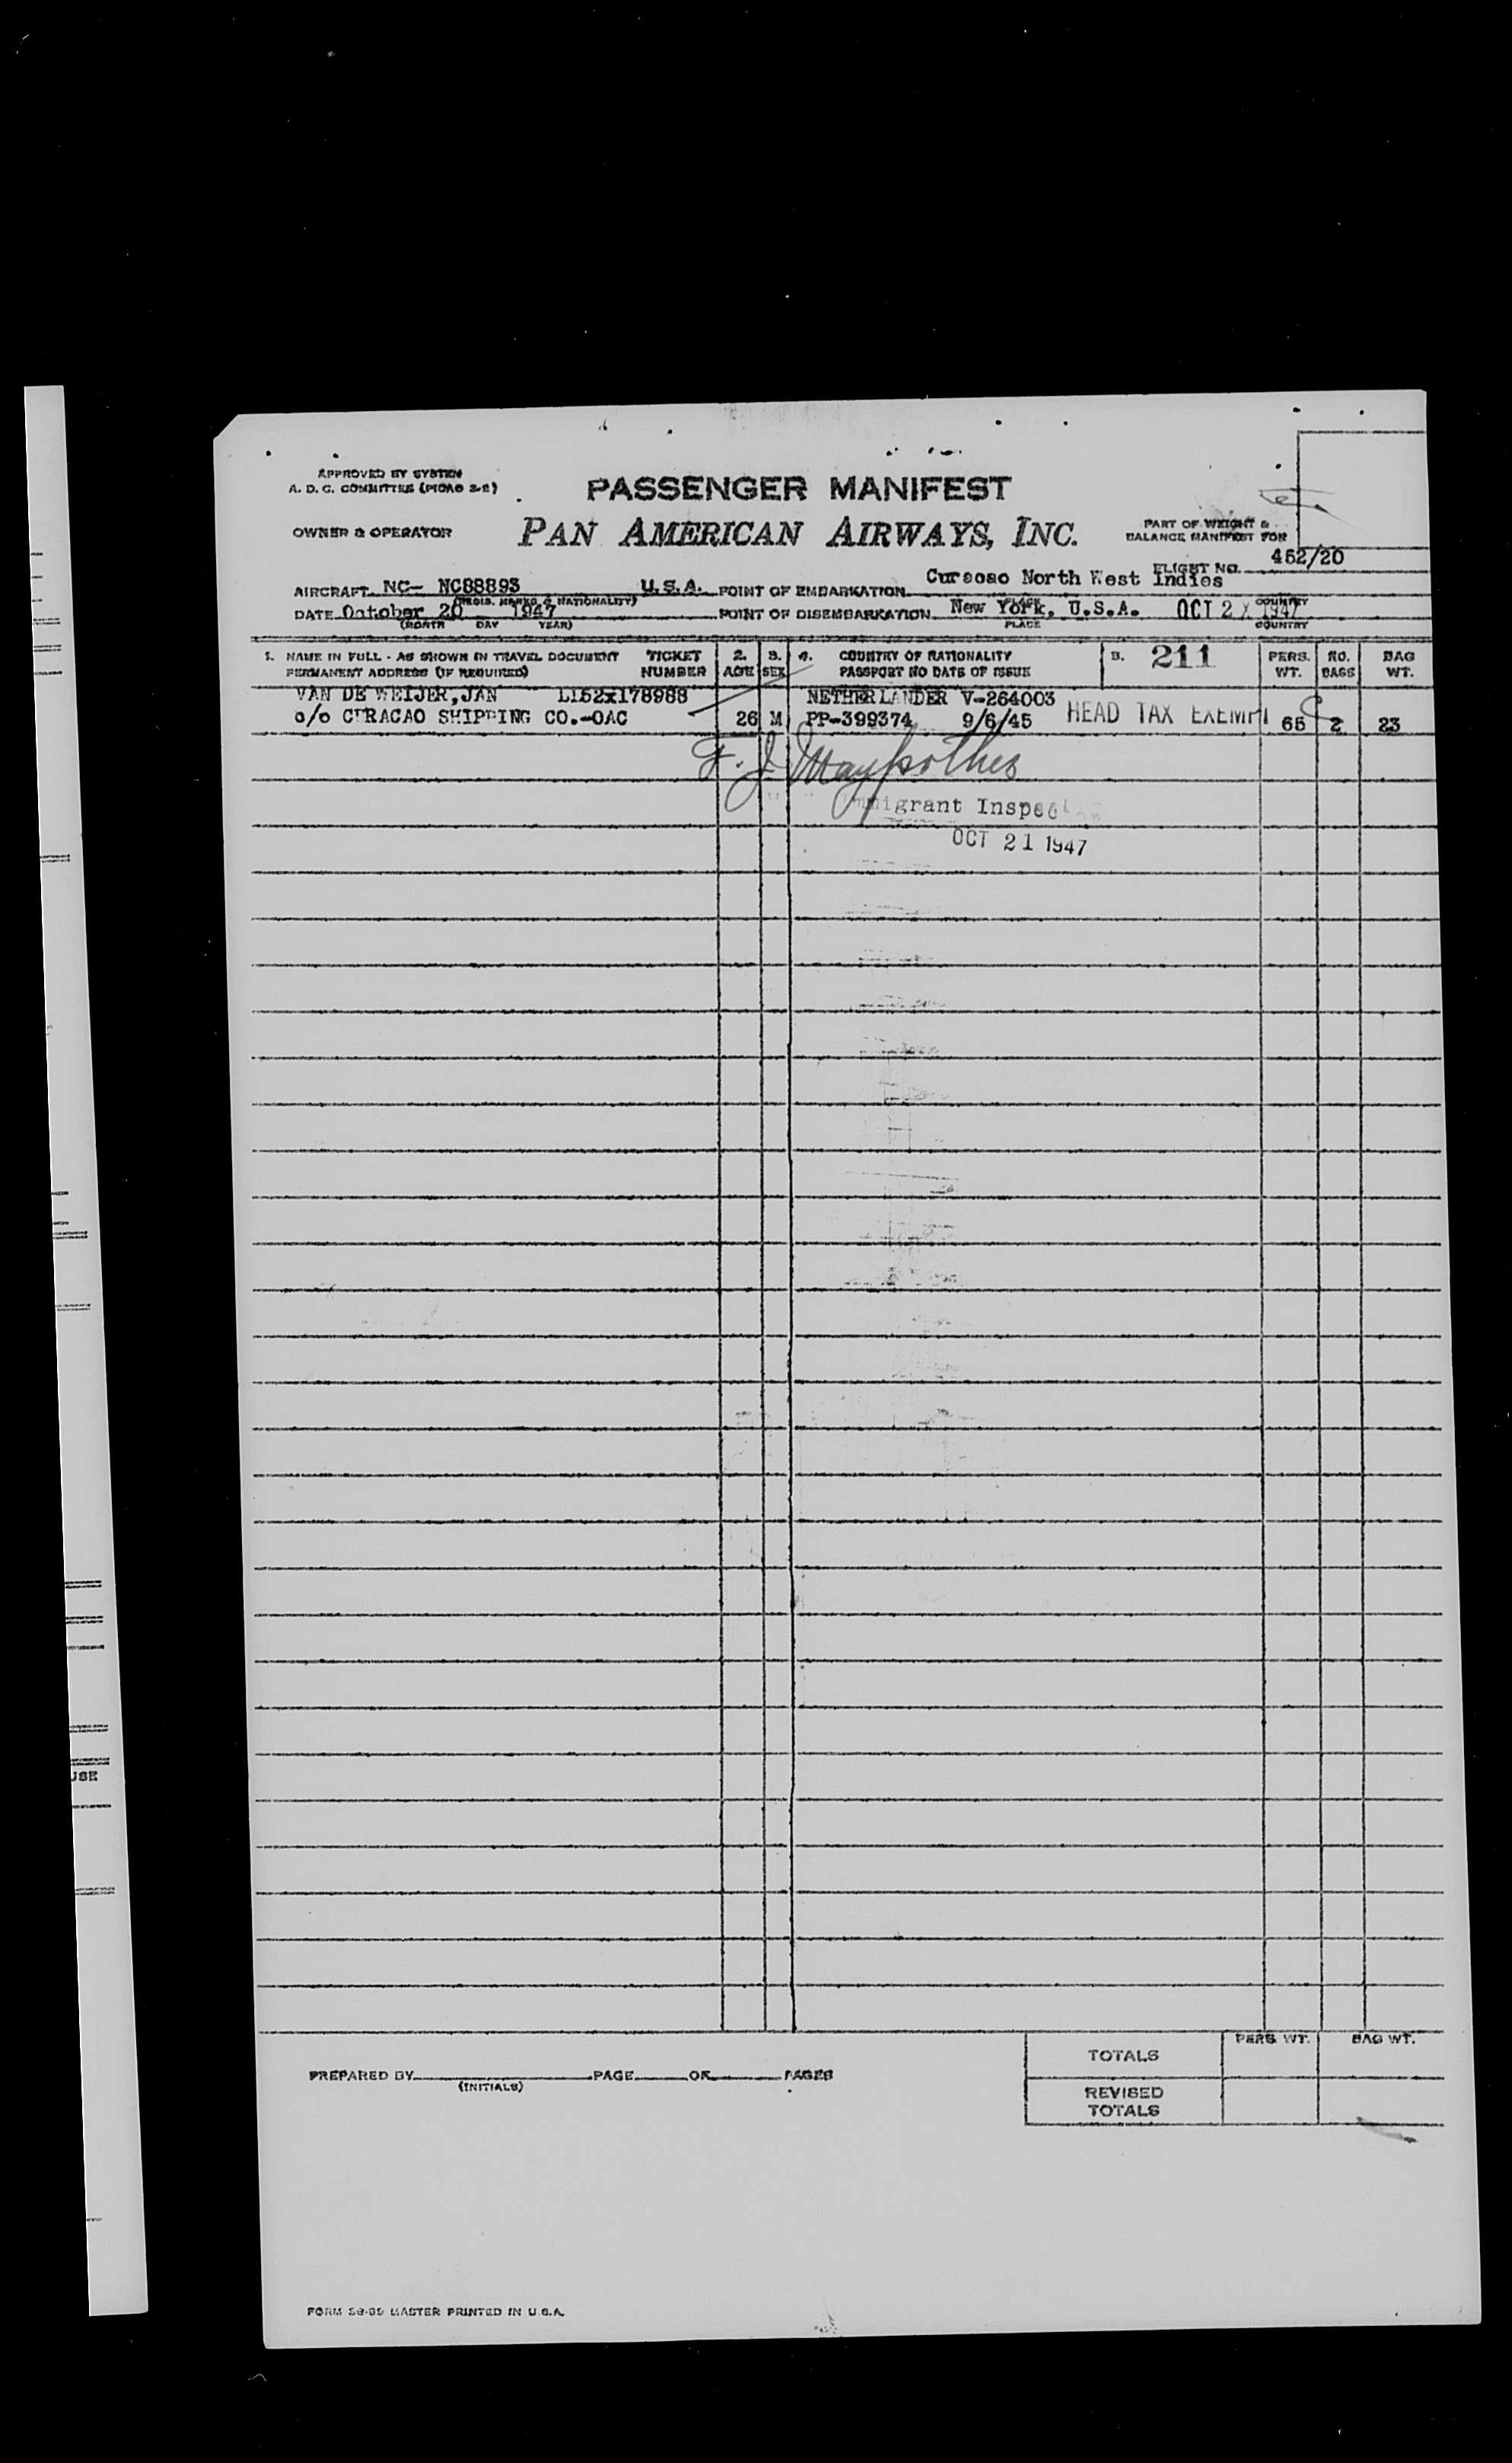 APPROVED BY SYSTEM
A. D. C. COMMITTEE (PICAO 2-2)
PASSENGER MANIFEST
OWNER & OPERATOR PAN AMERICAN AIRWAYS, INC.
PART OF WEIGHT &
BALANCE MANIFEST FOR
FLIGHT NO. 452/20
AIRCRAFT NC- NC88893 U.S.A. POINT OF EMBARKATION Curacao North West Indies
(REGIS. MARKS & NATIONALITY) PLACE COUNTRY
DATE October 20 1947 POINT OF DISEMBARKATION New York, U.S.A. OCT 2 1947
(MONTH DAY YEAR) PLACE COUNTRY
1. NAME IN FULL - AS SHOWN IN TRAVEL DOCUMENT TICKET 2. 3. 4. COUNTRY OF NATIONALITY 5. 211 PERS. NO. BAG
PERMANENT ADDRESS (IF REQUIRED) NUMBER AGE SEX PASSPORT NO DATE OF ISSUE WT. BAGS WT.
VAN DE WEIJER, JAN L152x178988 NETHERLANDER V-264003
c/o CURACAO SHIPPING CO.-OAC 26 M PP-399374 9/6/45 HEAD TAX EXEMPT 65 2 23
F. J.
Immigrant Inspector
OCT 21 1947
PERS WT. BAG WT.
TOTALS
PREPARED BY PAGE OF PAGES
(INITIALS)
REVISED
TOTALS
USE
FORM MASTER PRINTED IN U.S.A.